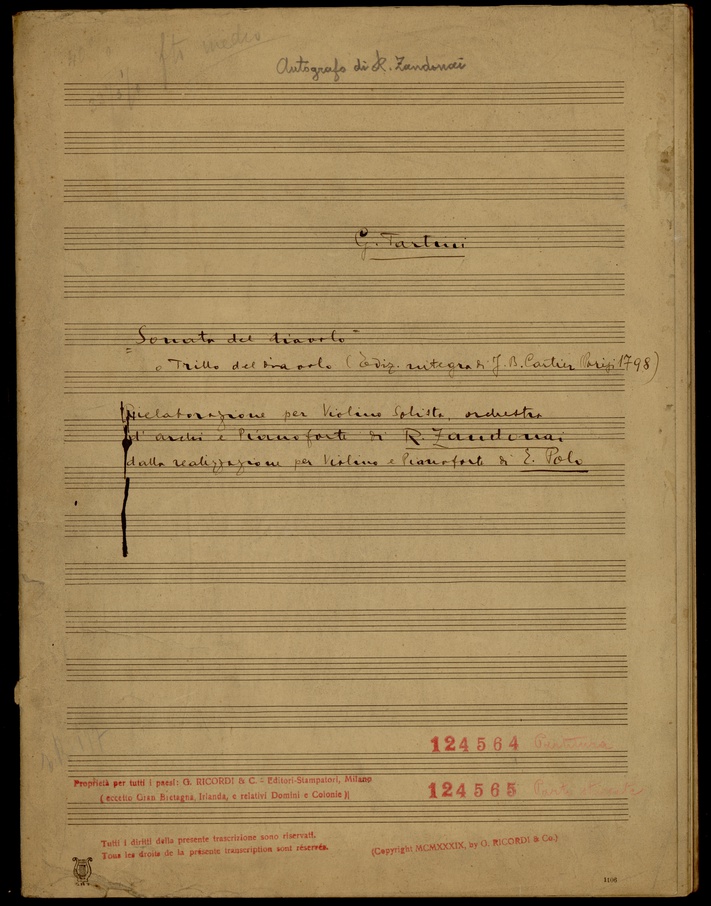 fto medio
Autografo di R. Zandonai
G. Tartini
"Sonata del diavolo"
o Trillo del diavolo (Ediz. integra di J. B. Cartier Parigi 1798)
Rielaborazione per Violino Solista, orchestra
d'archi e Pianoforte di R. Zandonai
dalla realizzazione per Violino e Pianoforte di E. Polo
124564 Partitura
Proprietà per tutti i paesi: G. RICORDI & C. - Editori-Stampatori, Milano
124565 Parti
(eccetto Gran Bretagna, Irlanda, e relativi Domini e Colonie)
Tutti i diritti della presente trascrizione sono riservati.
Tous les droits de la présente transcription sont réservés.
(Copyright MCMXXXIX, by G. RICORDI & Co.)
1106